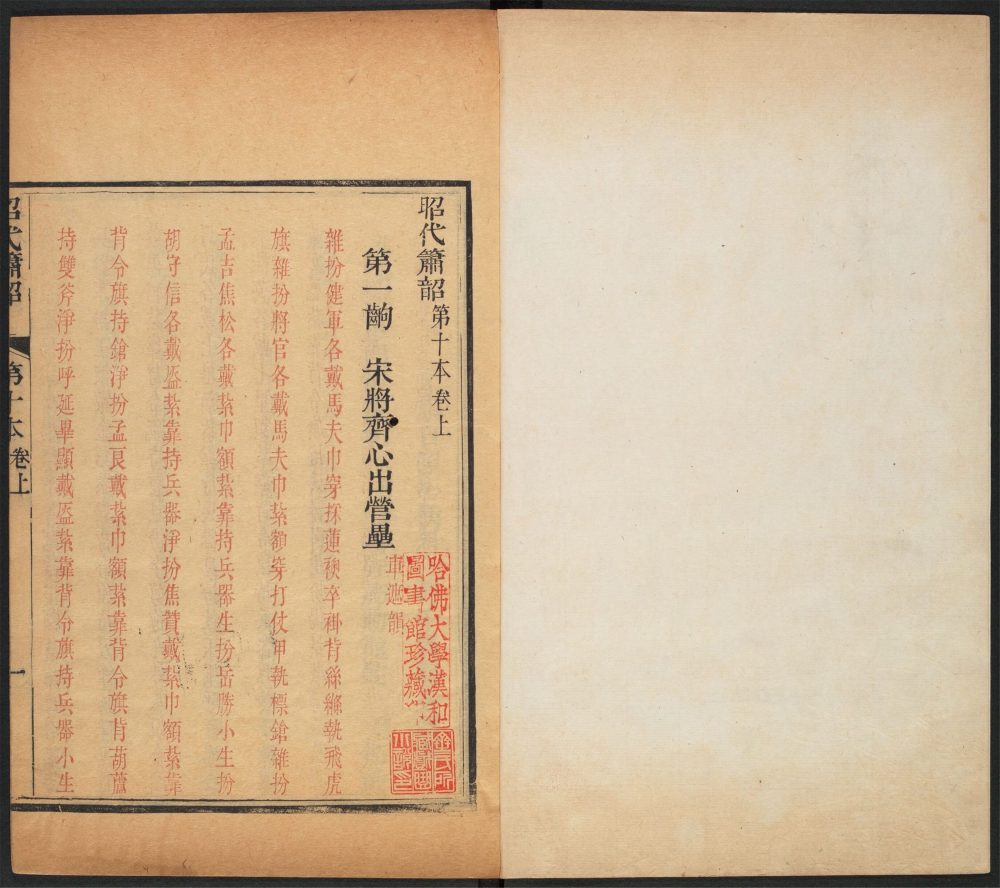 昭代簫韶第十本卷上
第一齣　宋將齊心出營壘
車遮韻
雜扮健軍各戴馬夫巾穿採蓮襖卒褂背絲縧執飛虎
旗雜扮將官各戴馬夫巾紮額穿打仗甲執標鎗雜扮
孟吉焦松各戴紮巾額紮靠持兵器生扮岳勝小生扮
胡守信各戴盔紮靠持兵器淨扮焦贊戴紮巾額紮靠
背令旗持鎗淨扮孟良戴紮巾額紮靠背令旗背葫蘆
持雙斧淨扮呼延畢顯戴盔紮靠背令旗持兵器小生
昭代簫韶
第十本卷上
一
哈佛大學漢和
圖書館珍藏